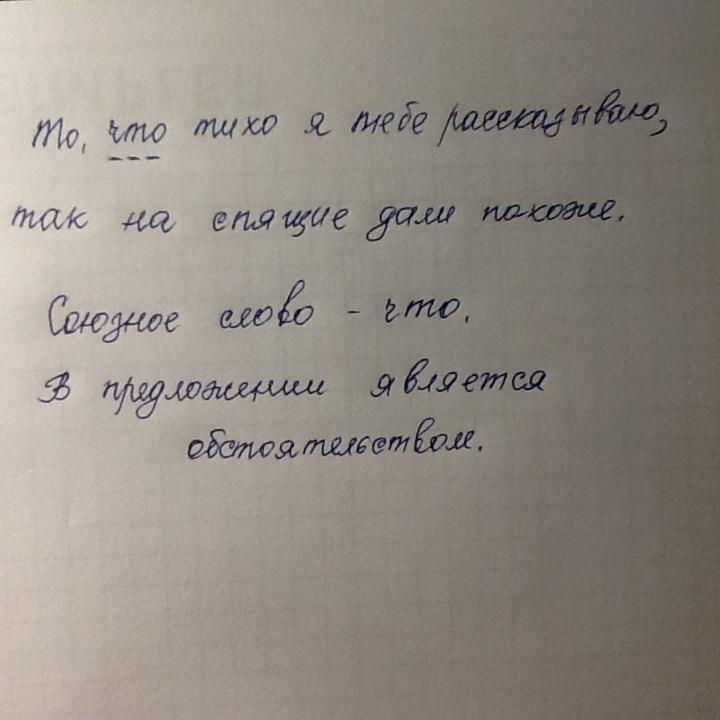 То, что тихо я тебе рассказываю,
так на спящие дали похоже.
Союзное слово - что.
В предложении является
обстоятельством.